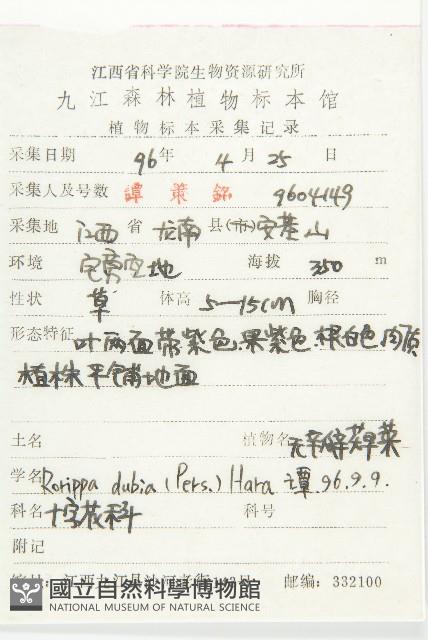 江西省科学院生物资源研究所
九江森林植物标本馆
植物标本采集记录
采集日期 96年 4月 25日
采集人及号数 譚策銘 9604149
采集地 江西省 龙南县(市) 安基山
环境 空地 海拔 350 m
性状 草 体高 5—15cm 胸径
形态特征 叶两面带紫色.果紫色.根白色肉质
植株平铺地面
土名 植物名 无瓣蔊菜
学名 Rorippa dubia (Pers.) Hara 譚.96.9.9.
科名 十字花科 科号
附记
邮编: 332100
國立自然科學博物館
NATIONAL MUSEUM OF NATURAL SCIENCE